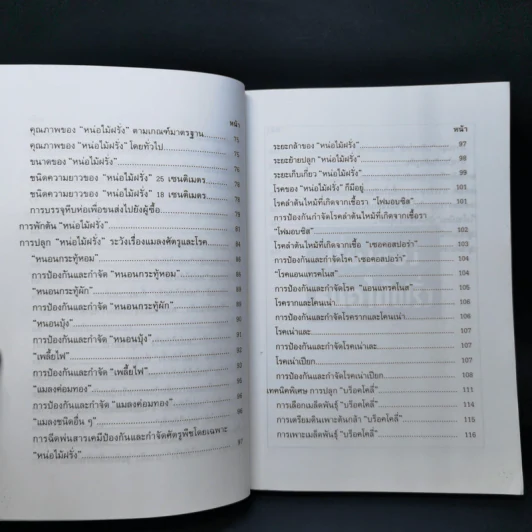 หน้า
คุณภาพของ "หน่อไม้ฝรั่ง" ตามเกณฑ์มาตรฐาน 75
คุณภาพของ "หน่อไม้ฝรั่ง" โดยทั่วไป
ขนาดของ "หน่อไม้ฝรั่ง"
ชนิดความยาวของ "หน่อไม้ฝรั่ง" 25 เซนติเมตร
ชนิดความยาวของ "หน่อไม้ฝรั่ง" 18 เซนติเมตร
การบรรจุหีบห่อเพื่อขนส่งไปยังผู้ซื้อ
การพักต้น "หน่อไม้ฝรั่ง"
การปลูก "หน่อไม้ฝรั่ง" ระวังเรื่องแมลงศัตรูและโรค
"หนอนกระทู้หอม"
การป้องกันและกำจัด "หนอนกระทู้หอม"
"หนอนกระทู้ผัก"
การป้องกันและกำจัด "หนอนกระทู้ผัก"
"หนอนบุ้ง"
การป้องกันและกำจัด "หนอนบุ้ง"
"เพลี้ยไฟ"
การป้องกันและกำจัด "เพลี้ยไฟ"
"แมลงค่อมทอง"
การป้องกันและกำจัด "แมลงค่อมทอง"
"แมลงชนิดอื่น ๆ"
การฉีดพ่นสารเคมีป้องกันและกำจัดศัตรูพืชโดยเฉพาะ
"หน่อไม้ฝรั่ง" 97
หน้า
ระยะกล้าของ "หน่อไม้ฝรั่ง" 97
ระยะย้ายปลูก "หน่อไม้ฝรั่ง" 98
ระยะเก็บเกี่ยว "หน่อไม้ฝรั่ง" 99
โรคของ "หน่อไม้ฝรั่ง" ก็มีอยู่ 101
โรคลำต้นไหม้ที่เกิดจากเชื้อรา "โฟมอบซิส" 101
การป้องกันกำจัดโรคลำต้นไหม้ที่เกิดจากเชื้อรา
"โฟมอบซิส" 102
โรคลำต้นไหม้ที่เกิดจากเชื้อ "เซอคอสปอร่า" 103
การป้องกันและกำจัดโรค "เซอคอสปอร่า" 104
"โรคแอนแทรคโนส" 104
การป้องกันและกำจัดโรค "แอนแทรคโนส" 106
โรครากและโคนเน่า 106
การป้องกันและกำจัดโรครากและโคนเน่า 106
โรคเน่าเละ 107
การป้องกันและกำจัดโรคเน่าเละ 107
โรคเน่าเปียก 107
การป้องกันและกำจัดโรคเน่าเปียก 108
เทคนิคพิเศษ การปลูก "บร๊อคโคลี่" 111
การเลือกเมล็ดพันธุ์ "บร๊อคโคลี่" 114
การเตรียมดินเพาะต้นกล้า "บร๊อคโคลี่" 115
การเพาะเมล็ดพันธุ์ "บร๊อคโคลี่" 116